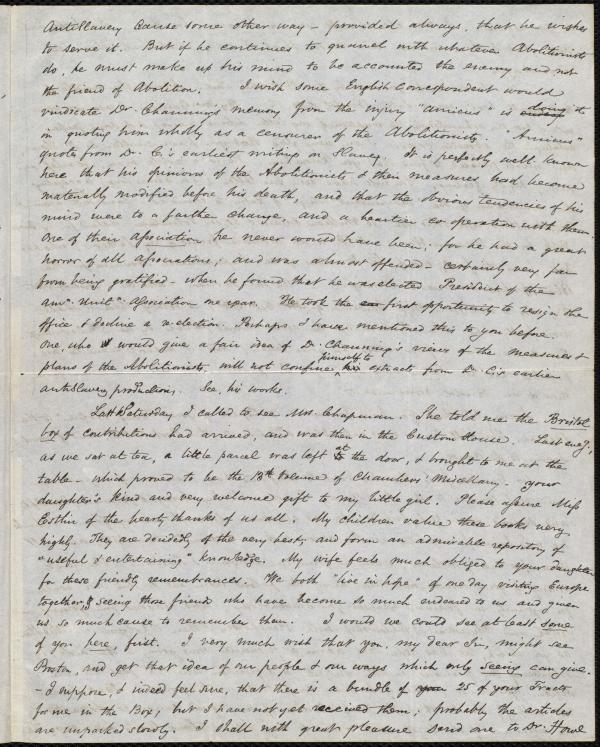 AntiSlavery Cause some other way – provided always, that he wishes
to serve it. But if he continues to quarrel with whatever Abolitionists
do, he must make up his mind to be accounted the enemy and not
the friend of Abolition. I wish some English Correspondent would
vindicate Dr. Channing's memory from the injury "Amicus" is doing it
in quoting him wholly as a censurer of the Abolitionists. "Amicus"
quotes from Dr. C.'s earliest writings on Slavery. It is perfectly well known
here that his opinions of the Abolitionists & their measures had become
materially modified before his death, and that the obvious tendencies of his
mind were to a farther change, and a heartier co operation with them.
One of their Association he never would have been; for he had a great
horror of all Associations; and was almost offended – certainly very far
from being gratified – when he found that he was elected President of the
Amn. Unitn. Association one year. He took the first opportunity to resign the
office & decline a re-election. Perhaps I have mentioned this to you before.
One, who would give a fair idea of Dr. Channing's views of the measures &
plans of the Abolitionists, will not confine himself to extracts from Dr. C.'s earlier
antislavery productions. See, his works.
Last Saturday I called to see Mrs. Chapman. She told me the Bristol
box of contributions had arrived, and was then in the Custom House. Last eveg.,
as we sat at tea, a little parcel was left at the door, & brought to me at the
table – which proved to be the 13th Volume of Chambers' Miscellany – your
daughter's kind and very welcome gift to my little girl. Please assure Miss
Estlin of the hearty thanks of us all. My children value these books very
highly. They are decidedly of the very best, and form an admirable repository of
"useful & entertaining" knowledge. My wife feels much obliged to your daughter
for these friendly remembrances. We both "live in hope" of one day visiting Europe
together, & seeing those friends who have become so much endeared to us and given
us so much cause to remember them. I would we could see at least some
of you here, first. I very much wish that you, my dear Sir, might see
Boston, and get that idea of our people & our ways which only seeing can give.
– I suppose, & indeed feel sure, that there is a bundle of 25 of your Tracts
for me in the Box; but I have not yet received them; probably the articles
are unpacked slowly. I shall with great pleasure send one to Dr. Howe